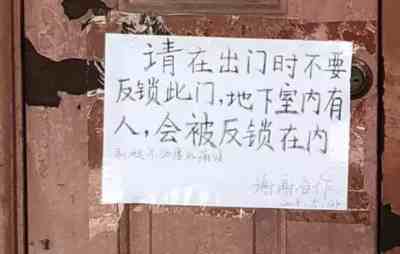 请在出门时不要
反锁此门,地下室内有
人,会被反锁在内
谢谢合作